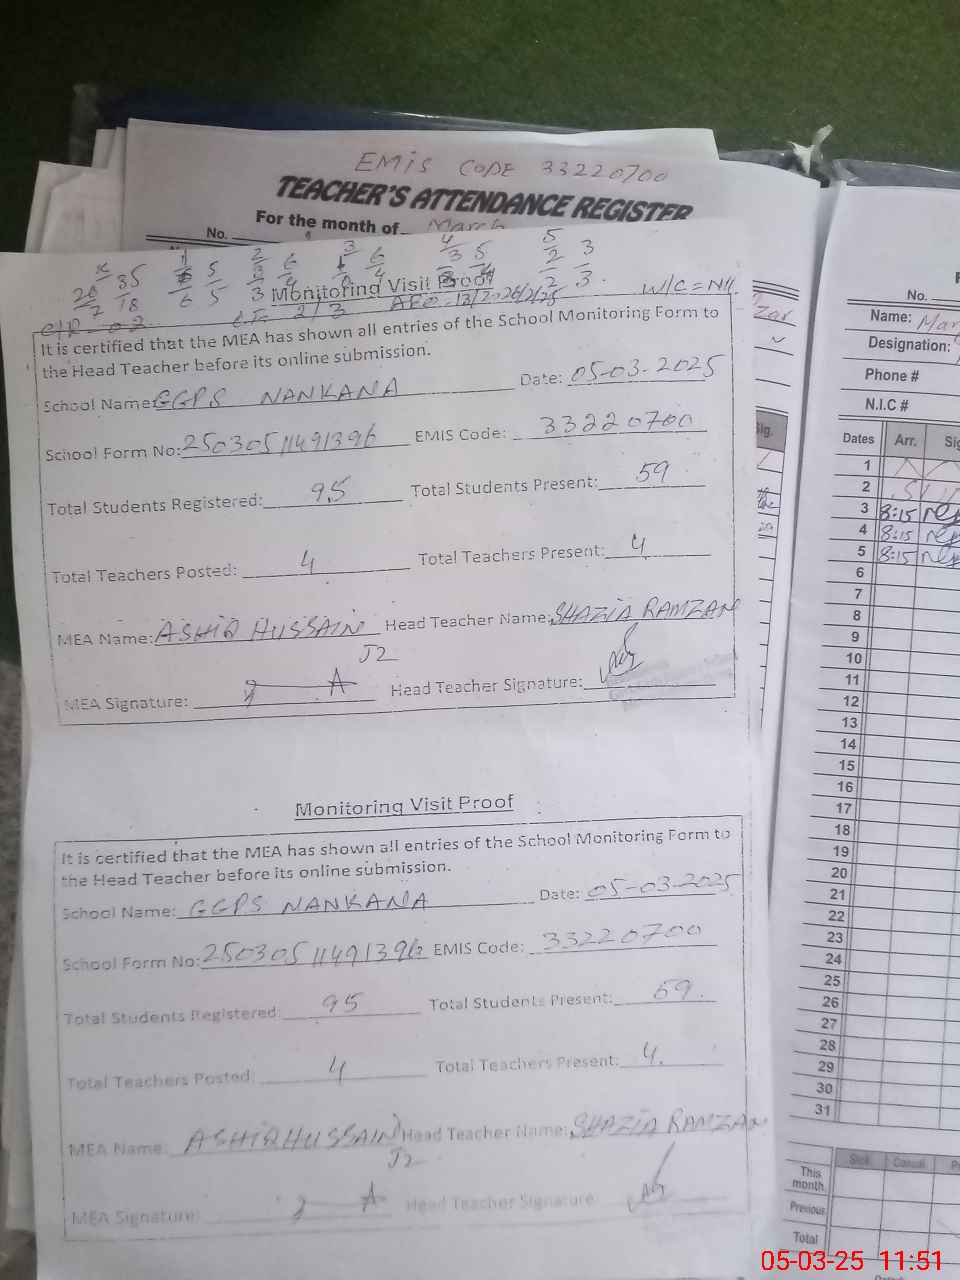 EMIS CODE 33220700
TEACHER'S ATTENDANCE REGISTER
For the month of March
No.
Monitoring Visit Proof
W/C = Nil
It is certified that the MEA has shown all entries of the School Monitoring Form to
the Head Teacher before its online submission.
School Name: GGPS NANKANA Date: 05-03-2025
School Form No: 25030511491396 EMIS Code: 33220700
Total Students Registered: 95 Total Students Present: 59
Total Teachers Posted: 4 Total Teachers Present: 4
MEA Name: ASHIQ HUSSAIN Head Teacher Name: SHAZIA RAMZAN
J2
MEA Signature: Head Teacher Signature:
Monitoring Visit Proof
It is certified that the MEA has shown all entries of the School Monitoring Form to
the Head Teacher before its online submission.
School Name: GGPS NANKANA Date: 05-03-2025
School Form No: 25030511491396 EMIS Code: 33220700
Total Students Registered: 95 Total Students Present: 59.
Total Teachers Posted: 4 Total Teachers Present: 4.
MEA Name: ASHIQ HUSSAIN Head Teacher Name: SHAZIA RAMZAN
J2
MEA Signature: Head Teacher Signature:
No.
Name:
Designation:
Phone #
N.I.C #
Dates Arr.
1
2
3 8:15
4 8:15
5 8:15
6
7
8
9
10
11
12
13
14
15
16
17
18
19
20
21
22
23
24
25
26
27
28
29
30
31
Sick Casual
This month
Previous
Total
05-03-25 11:51